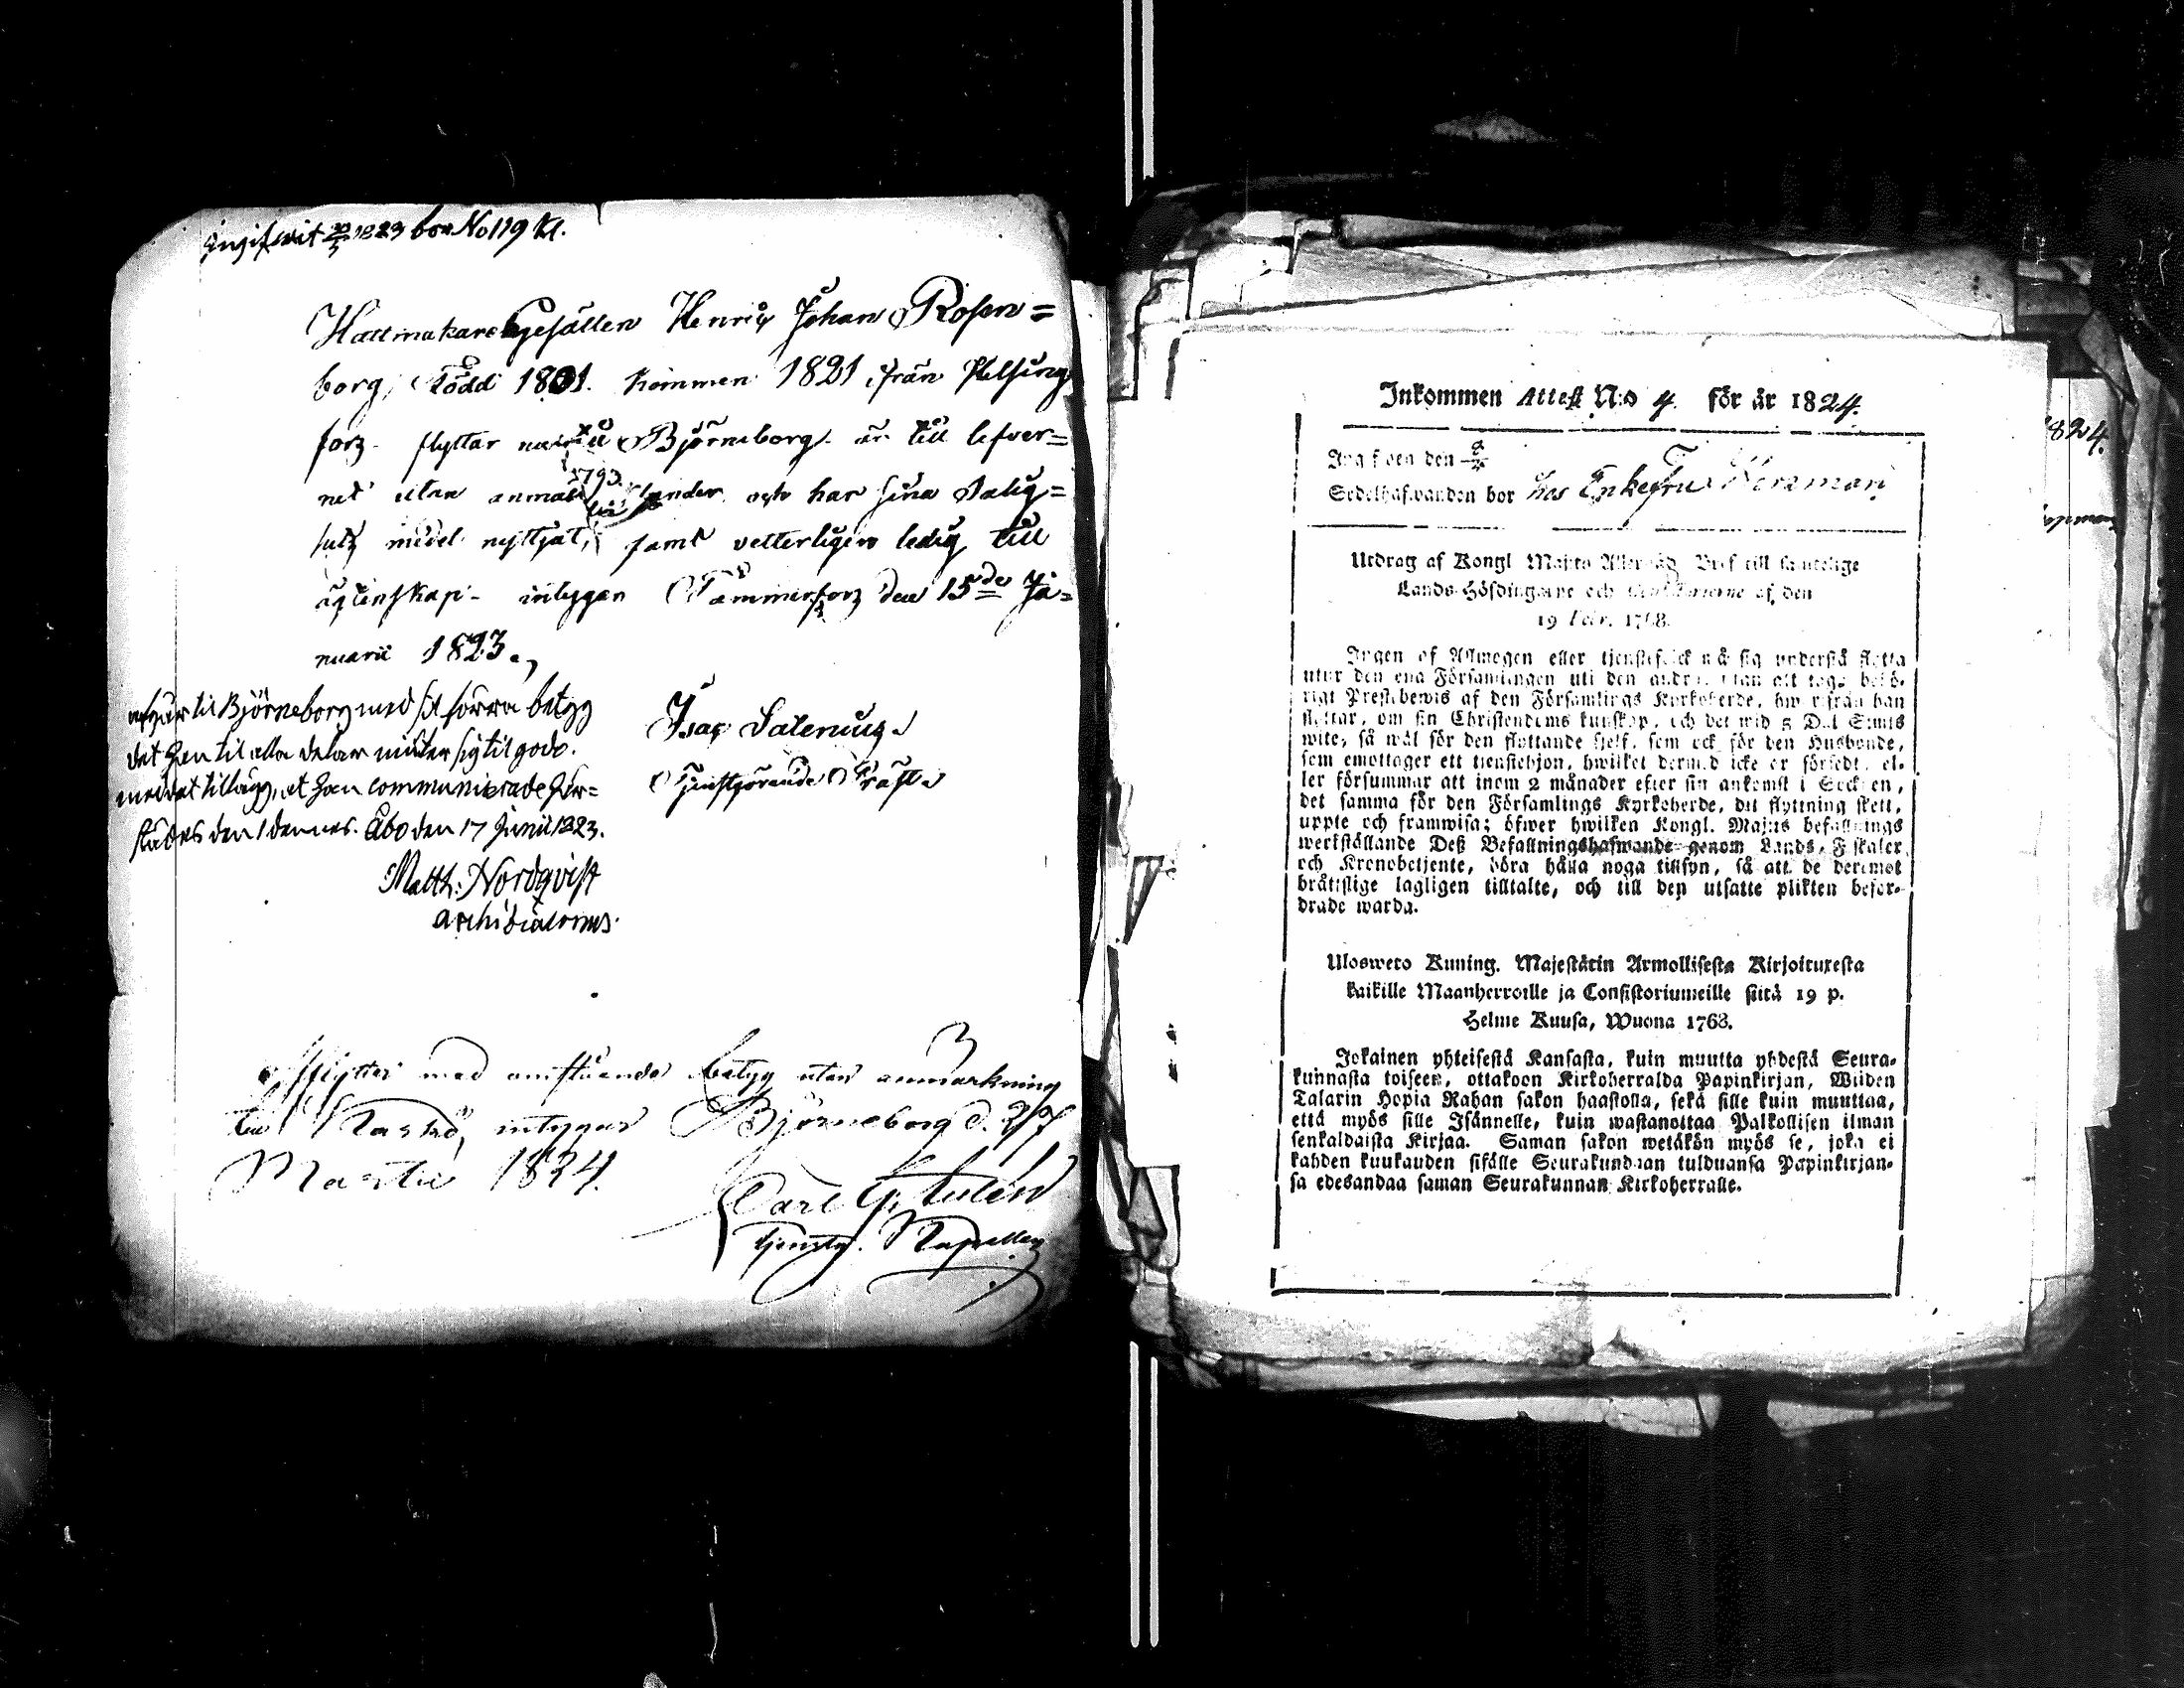 ingifwit 20/3 1823 bor No 119 Kl.
Hattmakare Gesällen Henric Johan Rosen=
borg, född 1801. kommen 1821 ifrån Helsing
fors. flyttar nu till Björneborg. är till lefver=
net utan anmärk
och har sina Salig=
hetz medel nyttjat, samt vetterligen ledig till
ägtenskap. intygar Tammerfors den 15de Ja=
nuarii 1823.
Isac Salenius
Tjenstgörande Präst
afgår til Björneborg med sit förra betyg
det han til alla delar
med det tillägg, at han communicerade här=
städes den 1 dennes. Åbo den 17 Junii 1823.
Matth: Nordqvist
archidiaconus.
3
Afflyttar med omstående betyg utan anmärkning
till Kaskö, intygar Björneborg d. 27
Martii 1824.
Carl G.
tjenstg. Kapellan
Inkommen Attest N:o 4. för år 1824.
den
Sedelhafwanden bor hos Enkefru
Utdrag af Kongl Maj:ts Bref till samtelige
Lands-Höfdingarne och af den
19 Febr. 1768.
Ingen af Allmogen eller tjenstefolck må sig understå flytta
utur den ena Församlingen uti den andra utan att taga behö-
rigt Prestebewis af den Församlings Kyrkoherde, hwarifrån han
flyttar, om sin Christendoms kunskap, och det wid 5 Dal. S:mts
wite, så wäl för den flyttande sjelf, som ock för den Husbonde,
som emottager ett tjenstehjon, hwilket dermed icke är försedt, el-
ler försummar att inom 2 månader efter sin ankomst i Socknen,
det samma för den Församlings Kyrkoherde, dit flyttning skett,
uppte och framwisa; öfwer hwilken Kongl. Maj:ts befallnings
werkställande Deß Befallningshafwande genom Lands-Fiskaler
och Kronobetjente, böra hålla noga tillsyn, så att de deremot
bråttslige lagligen tilltalte, och till den utsatte plikten befor-
drade warda.
Ulosweto Kuning. Majestätin Armollisesta Kirjoituxesta
kaikille Maanherroille ja Consistoriumeille siitä 19 p.
Helme Kuusa, Wuona 1768.
Jokainen yhteisestä Kansasta, kuin muutta yhdestä Seura-
kunnasta toiseen, ottakoon Kirkoherralda Papinkirjan, Wiiden
Talarin Hopia Rahan sakon haastolla, sekä sille kuin muuttaa,
että myös sille Isännelle, kuin wastanottaa Palkollisen ilman
senkaldaista Kirjaa. Saman sakon wetäkön myös se, joka ei
kahden kuukauden sisälle Seurakundaan tulduansa Papinkirjan-
sa edesandaa saman Seurakunnan Kirkoherralle.
1824.